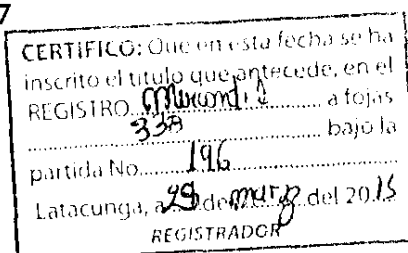 7
CERTIFICO: Que en esta fecha se ha
inscrito el titulo que antecede, en el
REGISTRO Mercantil a fojas
339 bajo la
partida No. 196
Latacunga, a 25 de marzo del 2015
REGISTRADOR